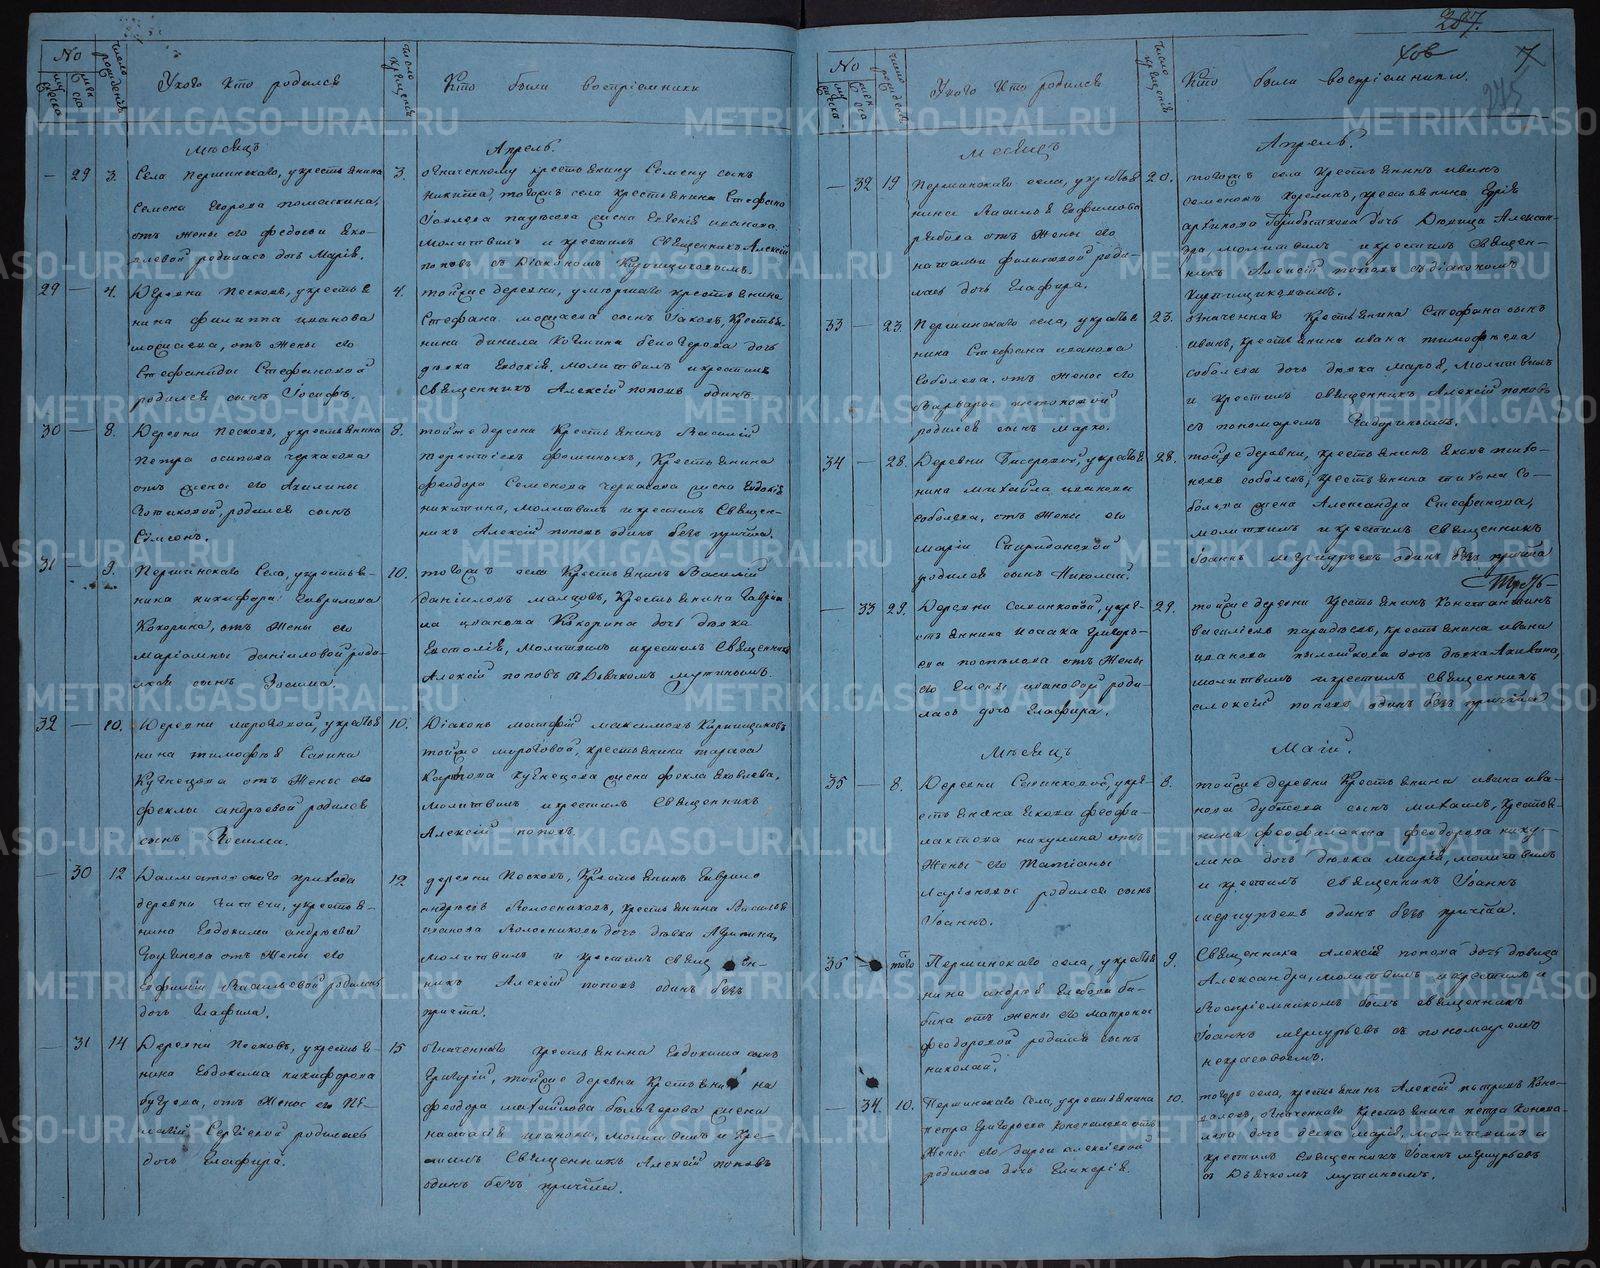 287.
7
245
No
мужеска
женска
число рожденія
У кого кто родился
число крещенія
Кто были воспріемники
Месяцъ
Апрель.
29 3.
Села Першинскаго, у крестьянина
Семена
отъ жены его Федосьи Яко-
влевой родилась дочь Марія.
3.
означенному крестьянину Семену сынъ
Никита, тогожъ села крестьянина Стефана
Іовлева жена Евгенія Иванова
Молитвилъ и крестилъ Священникъ Алексій
Поповъ съ Діакономъ Кирпищиковымъ.
29 4.
Деревни Песковъ, у крестья
нина Филиппа Иванова
отъ жены его
Стефаниды Стефановой
родился сынъ Іосифъ.
4.
тойже деревни, умершаго крестьянина
Стефана сынъ Іаковъ, крестья-
нина Данила дочь
девка Евдокія. Молитвилъ и крестилъ
Священникъ Алексій Поповъ одинъ.
30 8.
Деревни Песковъ, у крестьянина
Петра Осипова Черкасова
отъ жены его Акилины
родился сынъ
Симеонъ.
8.
тойже деревни крестьянинъ Василій
Терентіевъ Фоминыхъ, крестьянина
Феодора Семенова Черкасова жена Евдокія
Никитина, Молитвилъ и крестилъ Священ-
никъ Алексій Поповъ одинъ безъ причта.
31 9.
Першинскаго Села, у крестья-
нина Никифора Гаврилова
Кокорина, отъ жены его
Маріамны Даніиловой роди-
лся сынъ Зосима.
10.
тогожъ села Крестьянинъ Василій
Даніиловъ Мальцовъ, Крестьянина Гаври-
ла Иванова Кокорина дочь девка
Евстолія, Молитвилъ и крестилъ Священникъ
Алексій Поповъ съ Дьячкомъ Мутинымъ.
32 10.
Деревни Мироговой, у крестья
нина Тимофея Савина
Кузнецова отъ жены его
Феклы Андреевой родился
сынъ Зосима.
10.
Діаконъ Матфій Максимовъ Кирпищиковъ
тойже Мироговой, крестьянина Тараса
Карпова Кузнецова жена Фекла Яковлева,
Молитвилъ и крестилъ Священникъ
Алексій Поповъ.
30 12
Далматовскаго прихода
деревни у крестья-
нина Евдокима Андреева
отъ жены его
Евфиміи Васильевой родилась
дочь Глафира.
12
деревни Песковъ, Крестьянинъ Гаврило
Андреевъ Колосниковъ, крестьянина Василья
Иванова Колосникова дочь девка
Молитвилъ и крестилъ Священ-
никъ Алексій Поповъ одинъ безъ
причта.
31 14
Деревни Песковъ, у крестья-
нина Евдокима Никифорова
отъ жены его Пе-
лагіи Сергіевой родилась
дочь Глафира.
15
означеннаго крестьянина Евдокима сынъ
Григорій, тойже деревни Крестьянина
Феодора Михайлова Белозерова жена
Настасія Иванова, Молитвилъ и кре-
стилъ Священникъ Алексій Поповъ
одинъ безъ причта.
No
мужеска
женска
число рожденія
У кого кто родился
число крещенія
Кто были воспріемники.
Месяцъ
Апрель.
32 19
Першинскаго села, у крестья
нина Василья Евфимова
отъ жены его
Натальи Филиповой роди-
лась дочь Глафира.
20.
тогожъ села Крестьянинъ Иванъ
Семеновъ крестьянина
дочь Девица Александ-
ра Молитвилъ и крестилъ Священ-
никъ Алексій Поповъ съ діакономъ
Кирпищиковымъ.
33 23.
Першинскаго села, у крестья
нина Стефана Иванова
Соболева, отъ жены его
Варвары
родился сынъ Марко.
23.
означеннаго Крестьянина Стефана сынъ
Иванъ, крестьянина Ивана Тимофеева
Соболева дочь девка Марфа, Молитвилъ
и крестилъ священникъ Алексій Поповъ
съ пономаремъ
34 28.
Деревни у крестья
нина Михайла Иванова
Соболева, отъ жены его
Маріи Спиридоновой
родился сынъ Николай.
28.
тойже деревни, крестьянинъ Яковъ
Соболевъ, крестьянина Тихона Со-
болева жена Александра Стефанова,
Молитвилъ и крестилъ Священникъ
Іоаннъ Меркурьевъ одинъ безъ причта
33 29.
Деревни Савинковой, у кре-
стьянина Исаака Григорь-
ева Постылова отъ жены
его Елены Ивановой роди-
лась дочь Глафира.
29.
тойже деревни Крестьянинъ Константинъ
Василіевъ крестьянина Ивана
Иванова дочь девка Акилина,
Молитвилъ и крестилъ Священникъ
Алексій Поповъ одинъ безъ причта
Месяцъ
Маій.
35 8.
Деревни Савинковой, у кре-
стьянина Якова Феофи-
лактова Никулина отъ
жены его Татіаны
Ларіоновой родился сынъ
Іоаннъ.
8.
тойже деревни Крестьянина Ивана Ива-
нова сынъ Михаилъ, Крестья-
нина Феофилакта Феодорова Нику-
лина дочь девка Марія, Молитвилъ
и крестилъ Священникъ Іоаннъ
Меркурьевъ одинъ безъ причта.
36 того
Першинскаго села, у крестья
нина Андрея Глебова Ба-
бина отъ жены его Матроны
Феодоровой родился сынъ
Николай.
9.
Священника Алексія Попова дочь девица
Александра, Молитвилъ и крестилъ и
Воспріемникомъ былъ священникъ
Іоаннъ Меркурьевъ съ пономаремъ
Некрасовымъ.
34. 10.
Першинскаго Села, у крестьянина
Петра Григорьева Коновалова отъ
жены его Дарьи Алексіевой
родилась дочь Гликерія.
10.
тогожъ села, крестьянинъ Алексій Петровъ Коно-
валовъ, означеннаго Крестьянина Петра Конова-
лова дочь девка Марія, Молитвилъ и
крестилъ Священникъ Іоаннъ Меркурьевъ
съ Дьячкомъ Мутинымъ.
METRIKI.GASO-URAL.RU